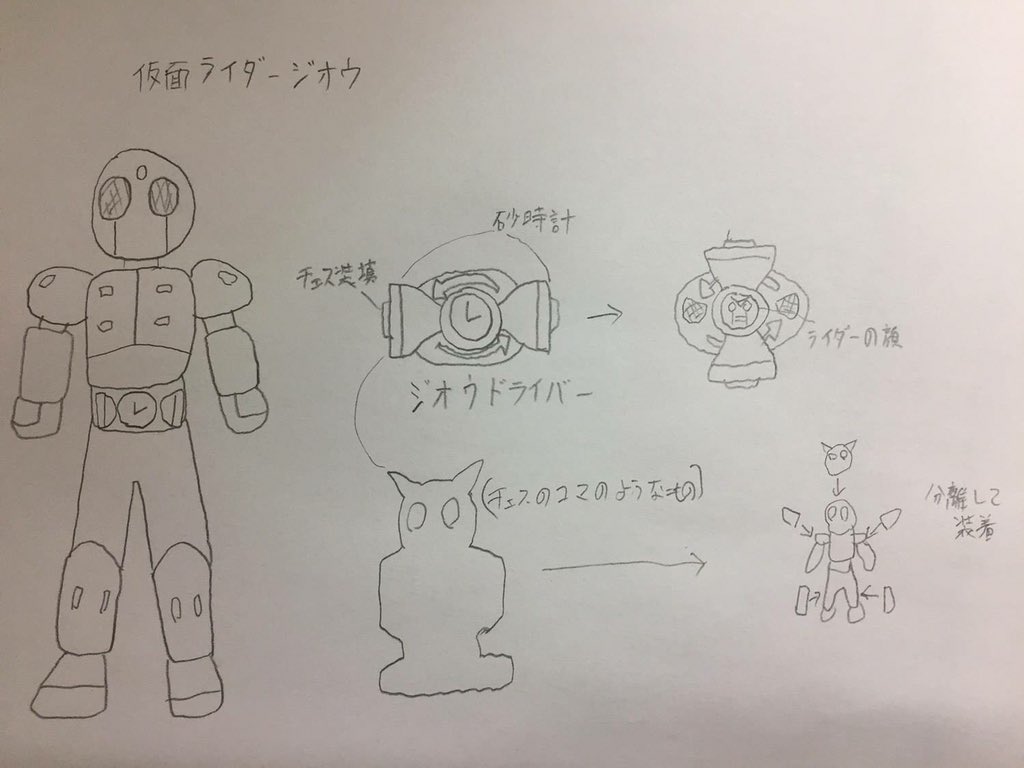 仮面ライダージオウ
砂時計
チェス装填
ライダーの顔
ジオウドライバー
(チェスのコマのようなもの)
分離して
装着